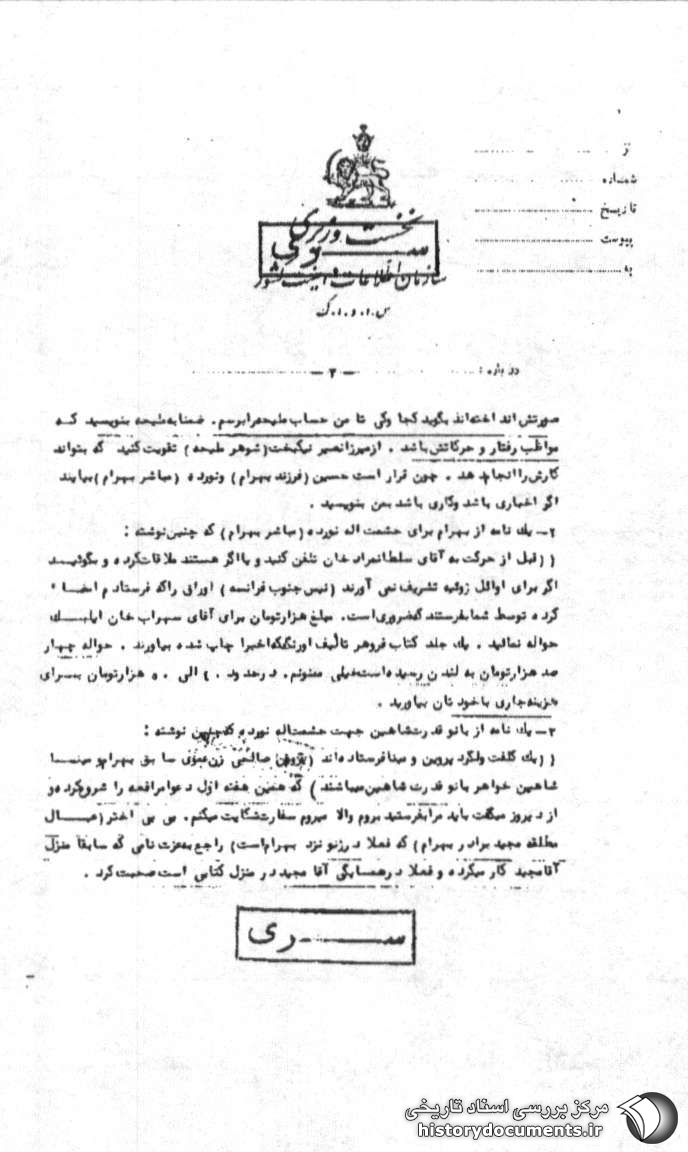 از
شماره
تاریخ
پیوست
به
نخست وزیری
ســـری
سازمان اطلاعات و امنیت کشور
س.ا.و.ا.ک
درباره :
ـ ۲ ـ
صورتش انداخته‌اند بگوید کجا وکی تا من حساب طیحه را برسم. ضمنا به طیحه بنویسید کـه
مواظب رفتار و حرکاتش باشد . از میرزا نصیر نیکبخت (شوهر طیحه) تقویت کنید که بتواند
کارش را انجام دهد . چون قرار است حسین (فرزند بهرام) و نورده (مباشر بهرام) بیایند
اگر اخباری باشد وکاری باشد بمن بنویسید .
۲ــ یک نامه از بهرام برای حشمت اله نورده (مباشر بهرام) که چنین نوشته :
((قبل از حرکت به آقای سلطانمراد خان تلفن کنید و یا اگر هستند ملاقات کرده و بگوئیــد
اگر برای اوائل ژوئیه تشریف نمی آورند (نیس جنوب فرانسه) اوراقی راکه فرستادم امضاء
کرده توسط شما بفرستند که ضروری است. مبلغ هزار تومان برای آقای سهراب خان
حواله نمائید . یک جلد کتاب فروهر تألیف اورنگ که اخیرا چاپ شده بیاورند . حواله چهار
صد هزار تومان به لندن رسیده است خیلی ممنونم. در حدود ۴۰ الی ۵۰ هزار تومان بــرای
هزینه جاری با خودتان بیاورید .
۳ــ یک نامه از بانو قدرت شاهین جهت حشمت اله نورده که چنین نوشته :
((یک کلفت ولگرد پروین و مینا فرستاده‌اند (پروین صالحی زن سابق بهرام و مینــا
شاهین خواهر بانو قدرت شاهین میباشند) که همین هفته اول دعوا مرافعه را شروع کرده و
از دیروز میگفت باید مرا بفرستید بروم والا میروم سفارت شکایت میکنم. بی بی اختر (عیــال
مطلقه مجید برادر بهرام) که فعلا در ژنو نزد بهرام است) راجع به عزت نامی که سابقا منزل
آقا مجید کار میکرده و فعلا در همسایگی آقا مجید در منزل کتابی است صحبت کرد .
ســـری
مرکز بررسی اسناد تاریخی
historydocuments.ir